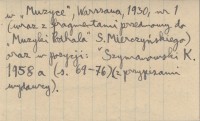 w „Muzyce", Warszawa, 1930, nr 1
(wraz z fragmentami przedmowy do
„Muzyki Podhala" S. Mierczyńskiego)
oraz w pozycji: Szymanowski K.
1958 a (s. 69-76)(z przypisami
wydawcy).